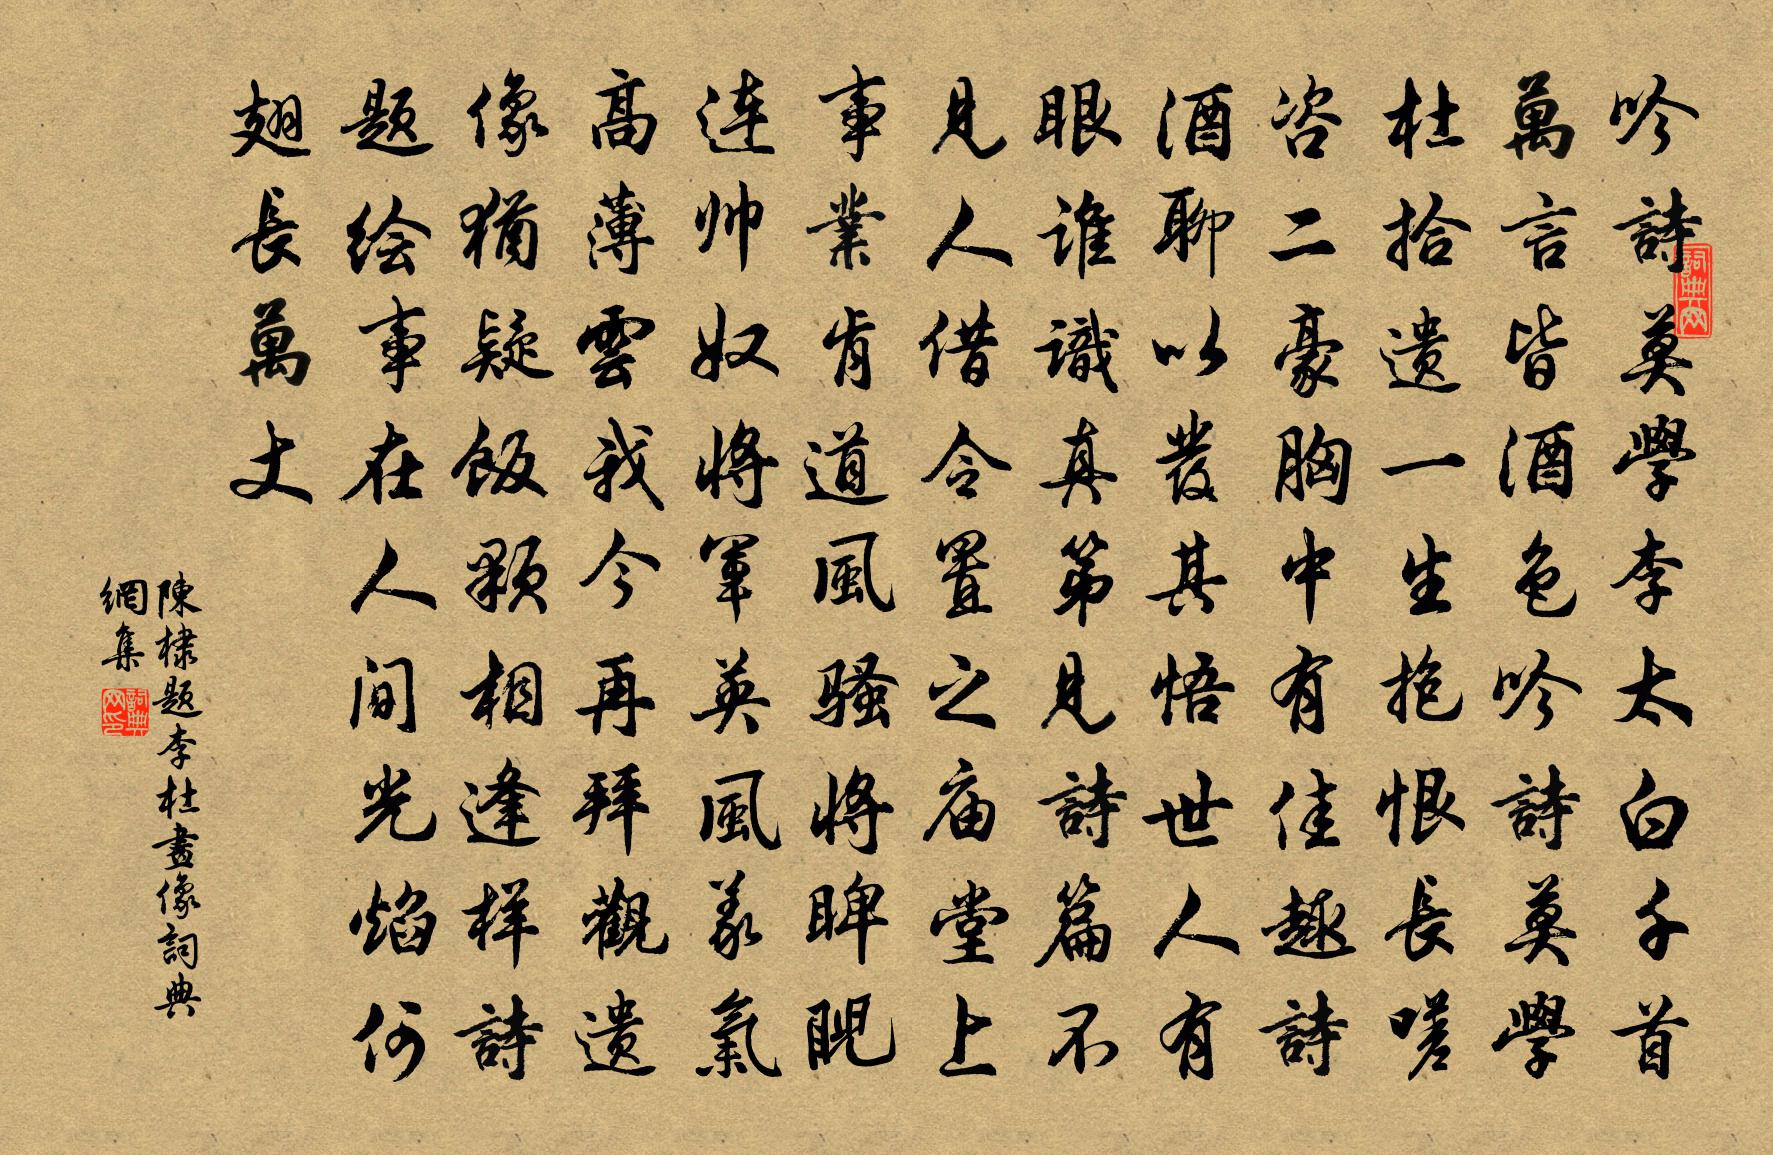 吟詩莫學李太白千首
萬言皆酒色吟詩莫學
杜拾遗一生抱恨長嗟
咨二豪胸中有佳趣詩
酒聊以發其悟世人有
眼谁識真第見詩篇不
見人借令置之庙堂上
事業肯道風騷将睥睨
连帅奴将軍英風義氣
高薄雲我今再拜觀遗
像猶疑飯颗相逢样詩
题绘事在人间光焰何
翅長萬丈
陳棣题李杜畫像詞典
網集
詞典网
詞典网印